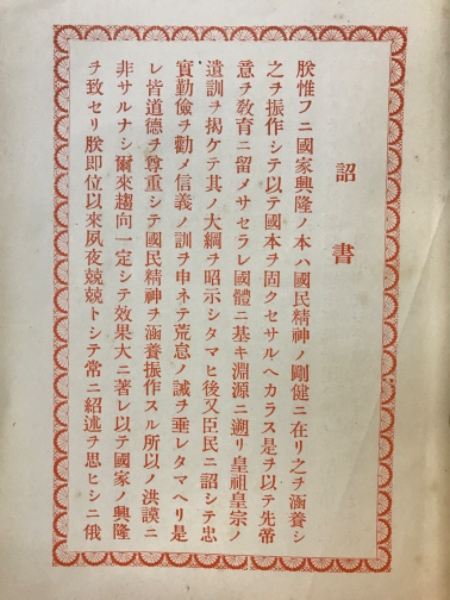 詔書
朕惟フニ國家興隆ノ本ハ國民精神ノ剛健ニ在リ之ヲ涵養シ
之ヲ振作シテ以テ國本ヲ固クセサルヘカラス是ヲ以テ先帝
意ヲ敎育ニ留メサセラレ國體ニ基キ淵源ニ遡リ皇祖皇宗ノ
遺訓ヲ揭ケテ其ノ大綱ヲ昭示シタマヒ後又臣民ニ詔シテ忠
實勤儉ヲ勸メ信義ノ訓ヲ申ネテ荒怠ノ誡ヲ垂レタマヘリ是
レ皆道德ヲ尊重シテ國民精神ヲ涵養振作スル所以ノ洪謨ニ
非サルナシ爾來趨向一定シテ效果大ニ著レ以テ國家ノ興隆
ヲ致セリ朕卽位以來夙夜兢兢トシテ常ニ紹述ヲ思ヒシニ俄